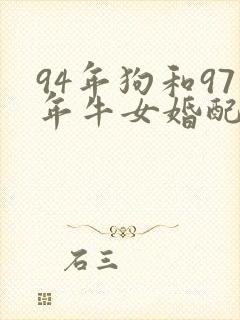 94年狗和97
年牛女婚配
石三